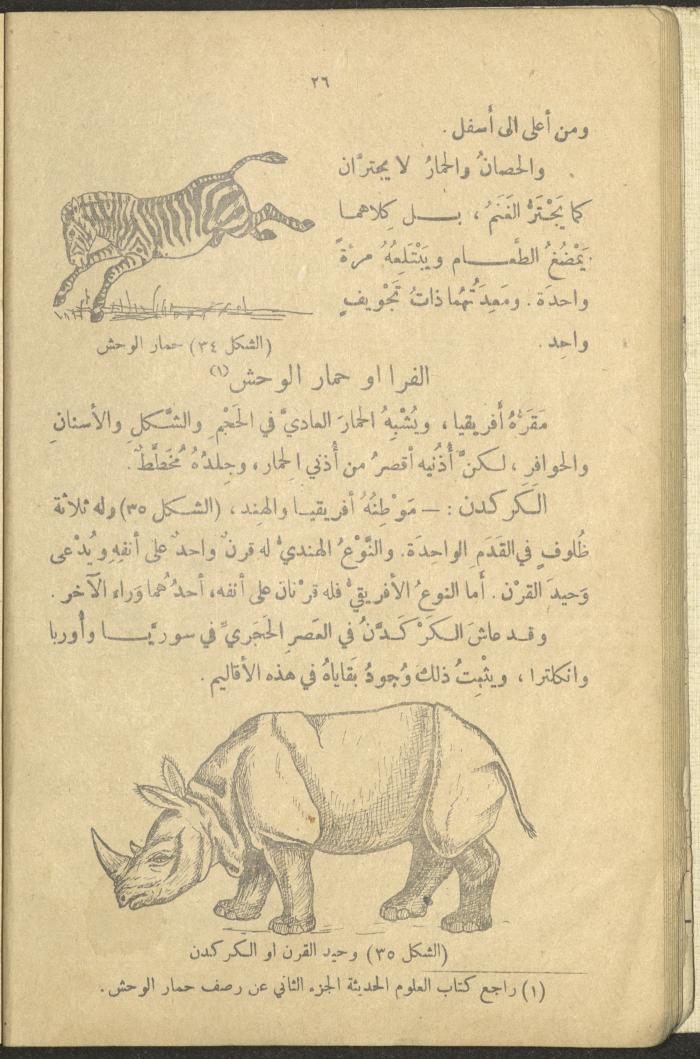 ٢٦
ومن أعلى الى أسفل .
والحصانُ والحمارُ لا يجترَّان
كما يَجْتَرُّ الغَنَمُ ، بـــل كِلاهمـا
يَمْضُغُ الطَّعـــام ويَبْتَلِعُهُ مرةً
واحدَة . ومَعِدَتُهُما ذاتُ تَجْويفٍ
واحِد .
(الشكل ٣٤) حمار الوحش
الفرا او حمار الوحش (١)
مَقَرَّهُ أَفريقيا ، ويُشْبِهُ الحمارَ العاديَّ في الحَجْمِ والشَّكلِ والأسنانِ
والحوافر ، لـكنَّ أُذُنيه أقصرُ من أُذني الحمار ، وجلدُهُ مُخَطَّطٌ .
الـكَركدن : — مَوْطِنُهُ أفريقيـا والهند ، (الشـكل ٣٥) وله ثلاثة
ظُلوفٍ في القَدَمِ الواحِدَة . والنَّوْعُ الهنديُّ له قرنٌ واحدٌ على أنفهِ ويُدْعى
وَحيدَ القرْن . أَما النوعُ الأَفريقيُّ فله قرْنان على أنفه ، أحدُهُما وَراء الآخر .
وقـد عاشَ الـكَرْكَـدَّنُ في العَصرِ الحَجَريِّ في سوريَّـــا وأُوربا
وانكلترا ، ويثْبِتُ ذلكَ وُجودُ بَقاياهُ في هذه الأقاليم .
(الشكل ٣٥) وحيد القرن او الـكركدن
(١) راجع كتاب العلوم الحديثة الجزء الثاني عن رصف حمار الوحش .